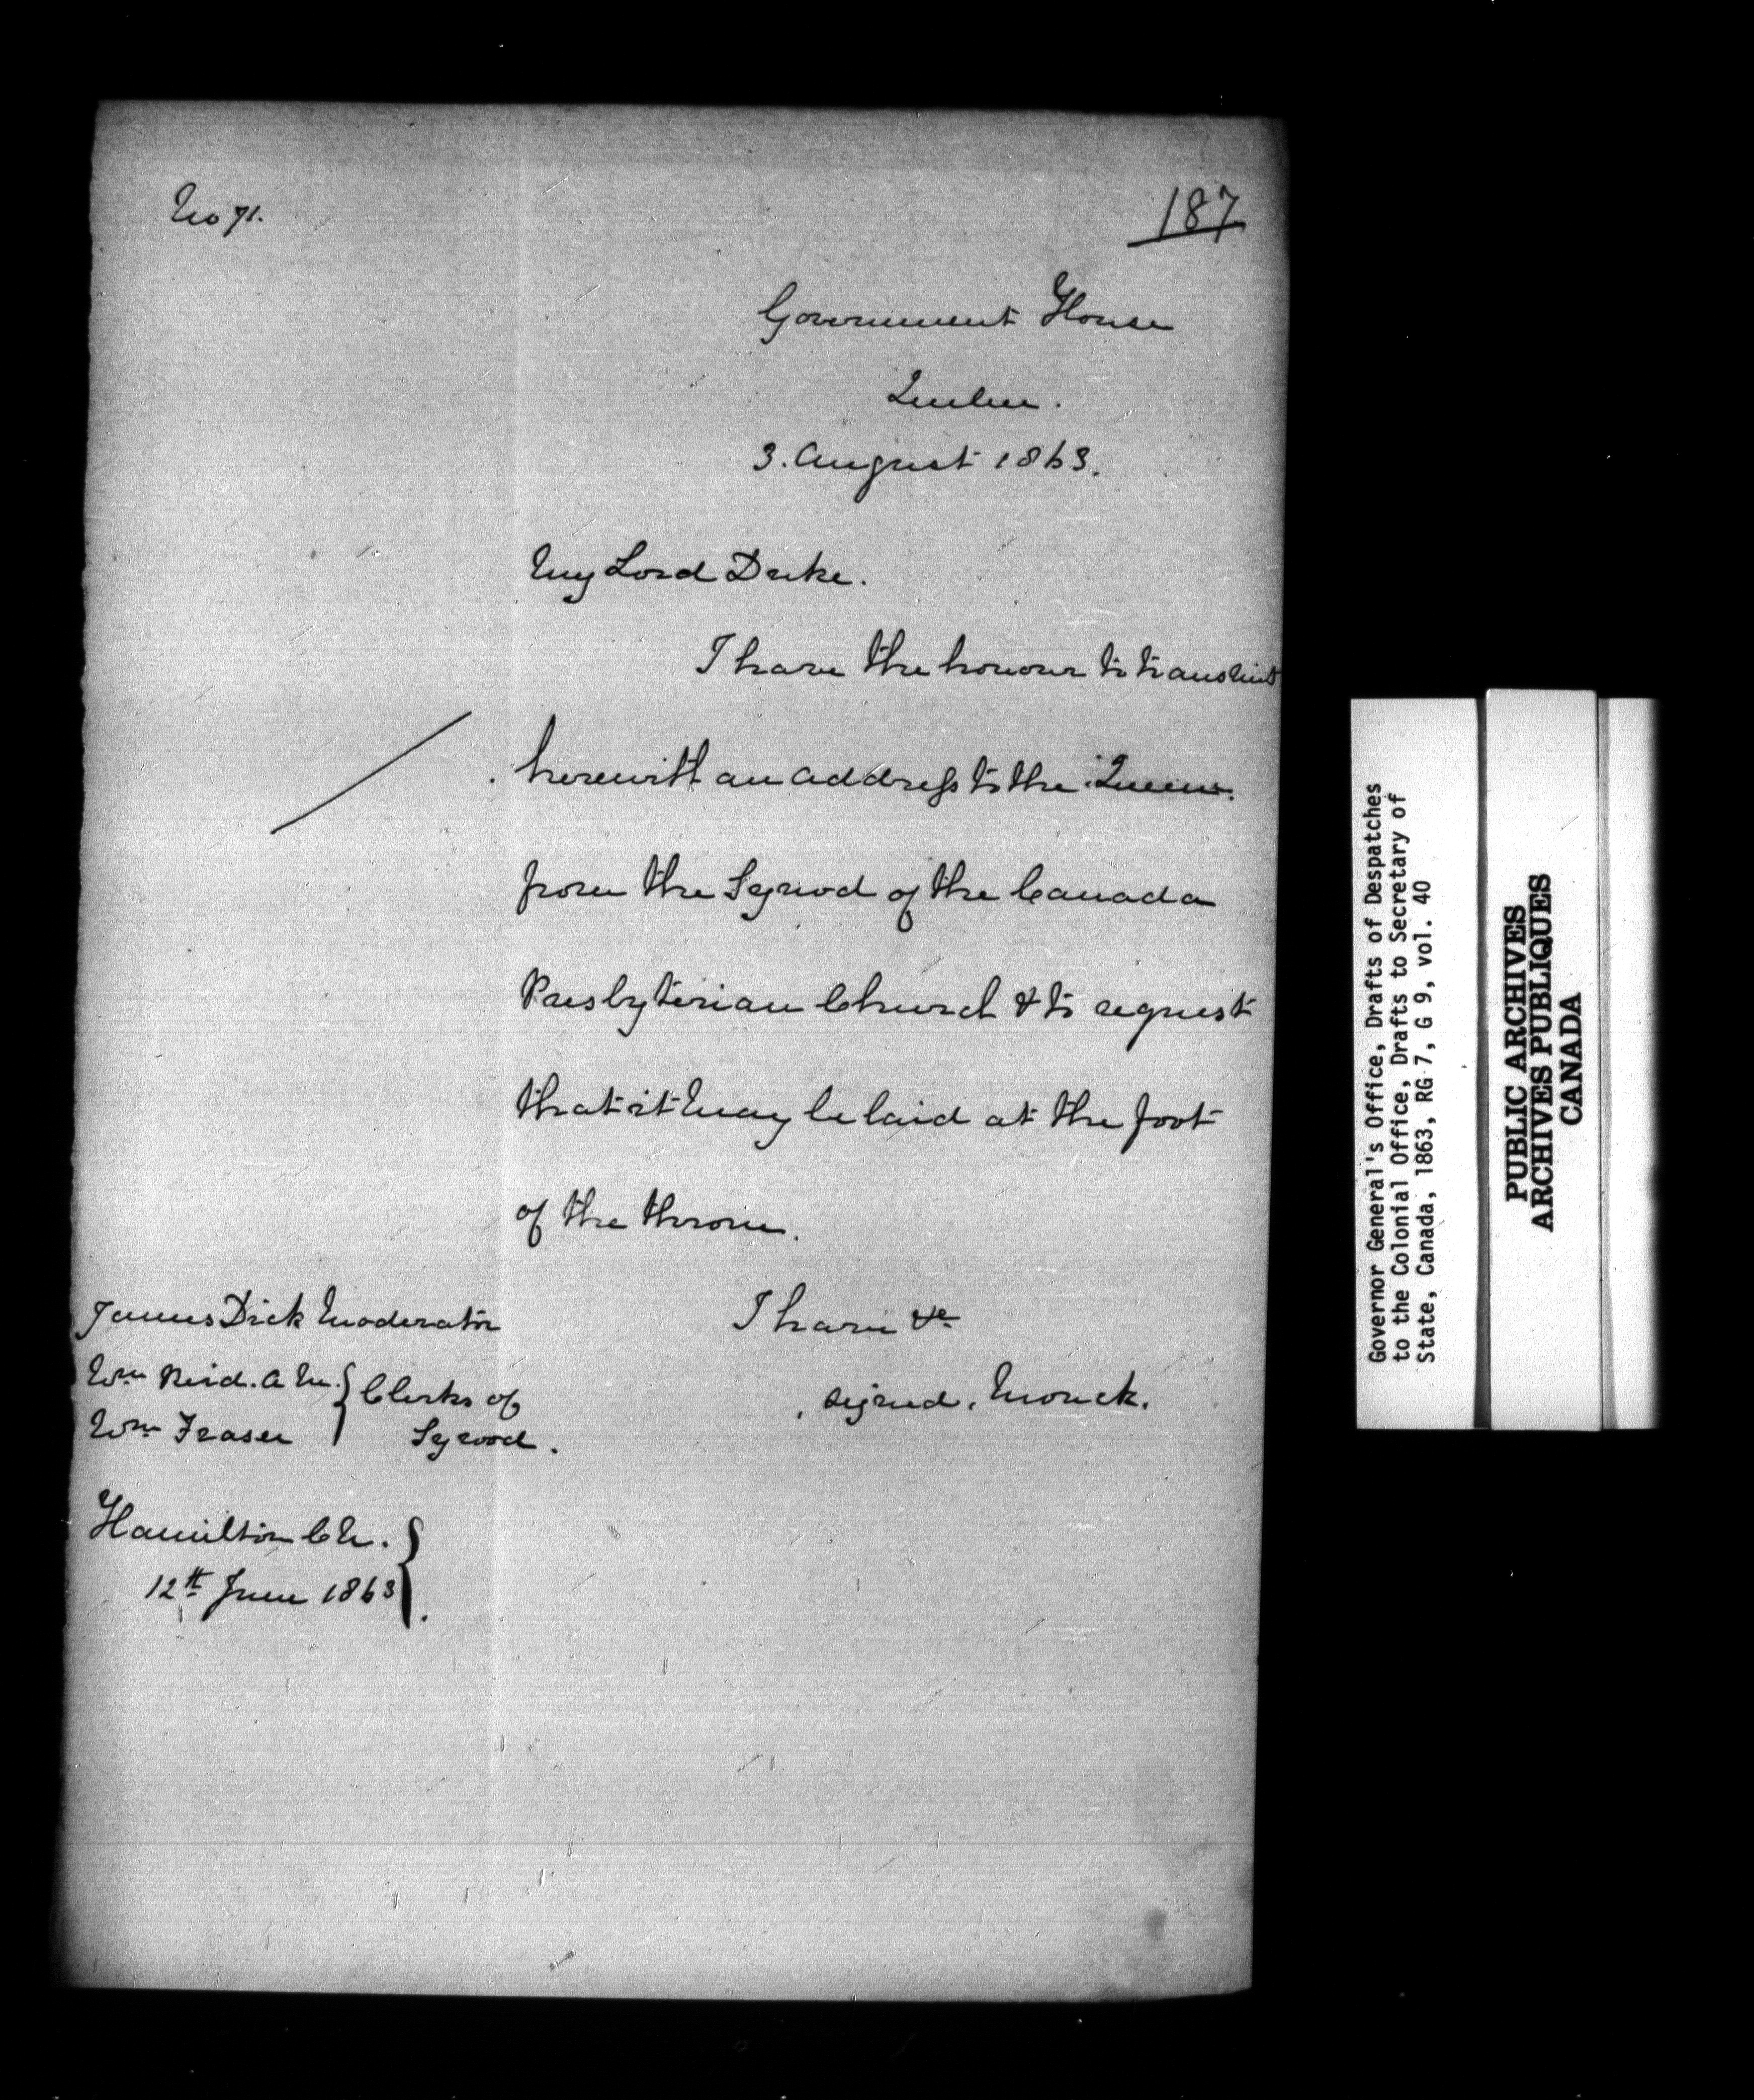 No 71.
187
Government House
Quebec.
3. August 1863.
My Lord Duke.
I have the honour to transmit
herewith an address to the Queen.
from the Synod of the Canada
Presbyterian Church & to request
that it may be laid at the foot
of the throne.
I have &c
signed. Monck.
James Dick Moderator
Wm Reid. A M. } Clerks of
Wm Fraser } Synod.
Hamilton C W. }
12th June 1863 }.
Governor General's Office, Drafts of Despatches
to the Colonial Office, Drafts to Secretary of
State, Canada, 1863, RG 7, G 9, vol. 40
PUBLIC ARCHIVES
ARCHIVES PUBLIQUES
CANADA